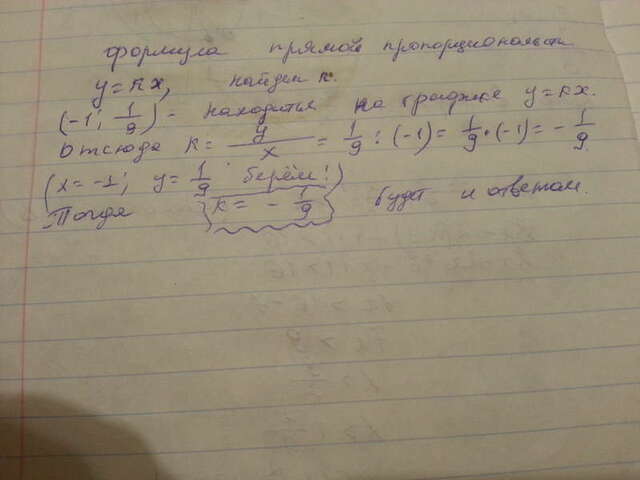 формула прямой пропорциональности
y=kx, найдем k.
(-1; 1/9) - находится на графике y=kx.
Отсюда k= y/x = 1/9 : (-1) = 1/9 • (-1) = - 1/9
(x=-1; y= 1/9 берём!)
Тогда k= - 1/9 будет и ответом.